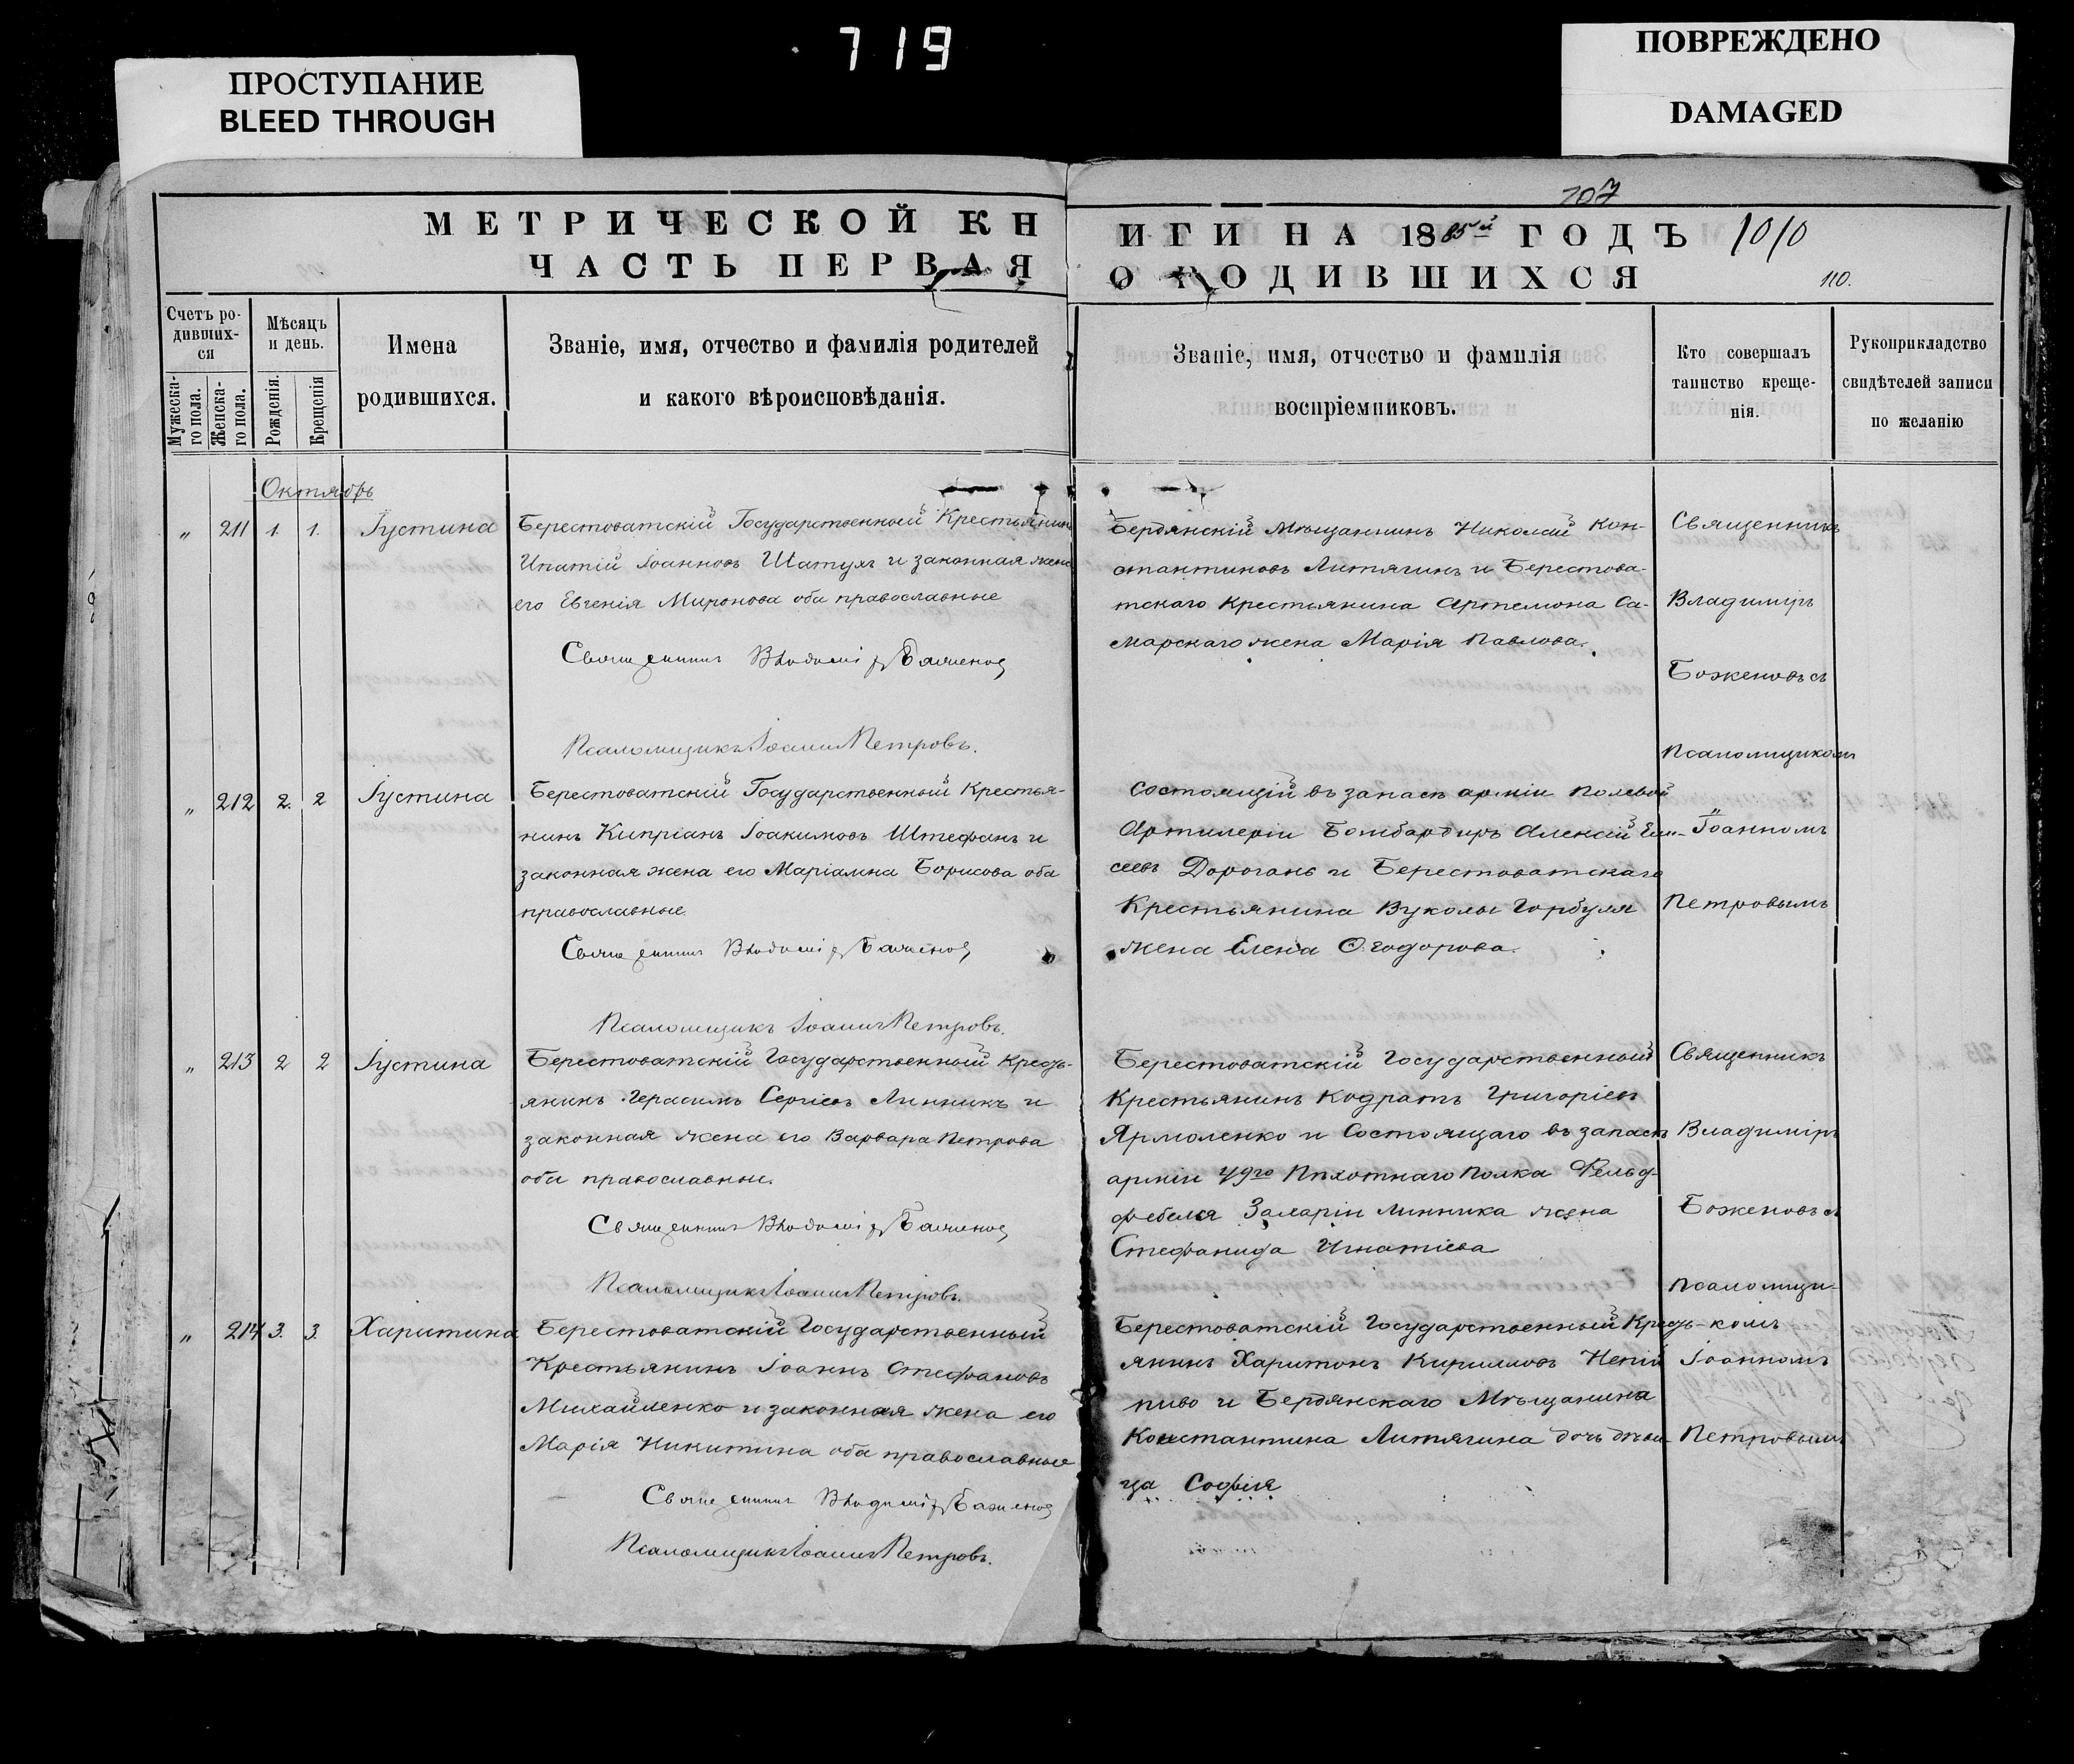 719
ПРОСТУПАНИЕ
BLEED THROUGH
ПОВРЕЖДЕНО
DAMAGED
107
МЕТРИЧЕСКОЙ КН
ЧАСТЬ ПЕРВАЯ
ИГИ НА 1885й ГОДЪ 1010
О РОДИВШИХСЯ 110.
Счетъ ро-
дивших-
ся
Мужеска-
го пола.
Женска-
го пола.
Мѣсяцъ
и день.
Рожденія.
Крещенія
Имена
родившихся.
Званіе, имя, отчество и фамилія родителей
и какого вѣроисповѣданія.
Званіе, имя, отчество и фамилія
воспріемниковъ.
Кто совершалъ
таинство креще-
нія.
Рукоприкладство
свидѣтелей записи
по желанію
Октябрь
„ 211 1. 1. Іустина
Берестоватскій Государственный Крестьянинъ
Ипатій Іоанновъ Шатухъ и законная жена
его Евгенія Миронова оба православные
Священникъ Владиміръ Баженовъ
Псаломщикъ Іоаннъ Петровъ.
Бердянскій Мѣщанинъ Николай Кон-
стантиновъ Литягинъ и Берестова-
тскаго Крестьянина Артемона Са-
марскаго жена Марія Павлова.
Священникъ
Владиміръ
Боженовъ съ
Псаломщикомъ
Іоанномъ
Петровымъ
„ 212 2. 2 Іустина
Берестоватскій Государственный Крестья-
нинъ Кипріанъ Іоакимовъ Штефанъ и
законная жена его Маріамна Борисова оба
православные.
Священникъ Владиміръ Баженовъ
Псаломщикъ Іоаннъ Петровъ.
Состоящій въ запасѣ арміи Полевой
Артилеріи Бомбардиръ Алексій Ели-
сеевъ Дорогань и Берестоватскаго
Крестьянина Вуколы Горбуля
жена Елена Ѳеодорова.
„ 213 2 2 Іустина
Берестоватскій Государственный Кресть-
янинъ Герасимъ Сергіевъ Линникъ и
законная жена его Варвара Петрова
оба православные.
Священникъ Владиміръ Баженовъ
Псаломщикъ Іоаннъ Петровъ.
Берестоватскій Государственный
Крестьянинъ Кодратъ Григоріевъ
Ярмоленко и Состоящаго въ запасѣ
арміи 49го Пѣхотнаго Полка Фельд-
фебеля Захаріи Линника жена
Стефанида Игнатіева
Священникъ
Владиміръ
Боженовъ съ
псаломщи-
комъ
Іоанномъ
Петровымъ
„ 214 3. 3. Харитина
Берестоватскій Государственный
Крестьянинъ Іоаннъ Стефановъ
Михайленко и законная жена его
Марія Никитина оба православные
Священникъ Владиміръ Баженовъ
Псаломщикъ Іоаннъ Петровъ.
Берестоватскій Государственный Кресть-
янинъ Харитонъ Кириловъ Непій
пиво и Бердянскаго Мѣщанина
Константина Литягина дочь дѣви-
ца Софія